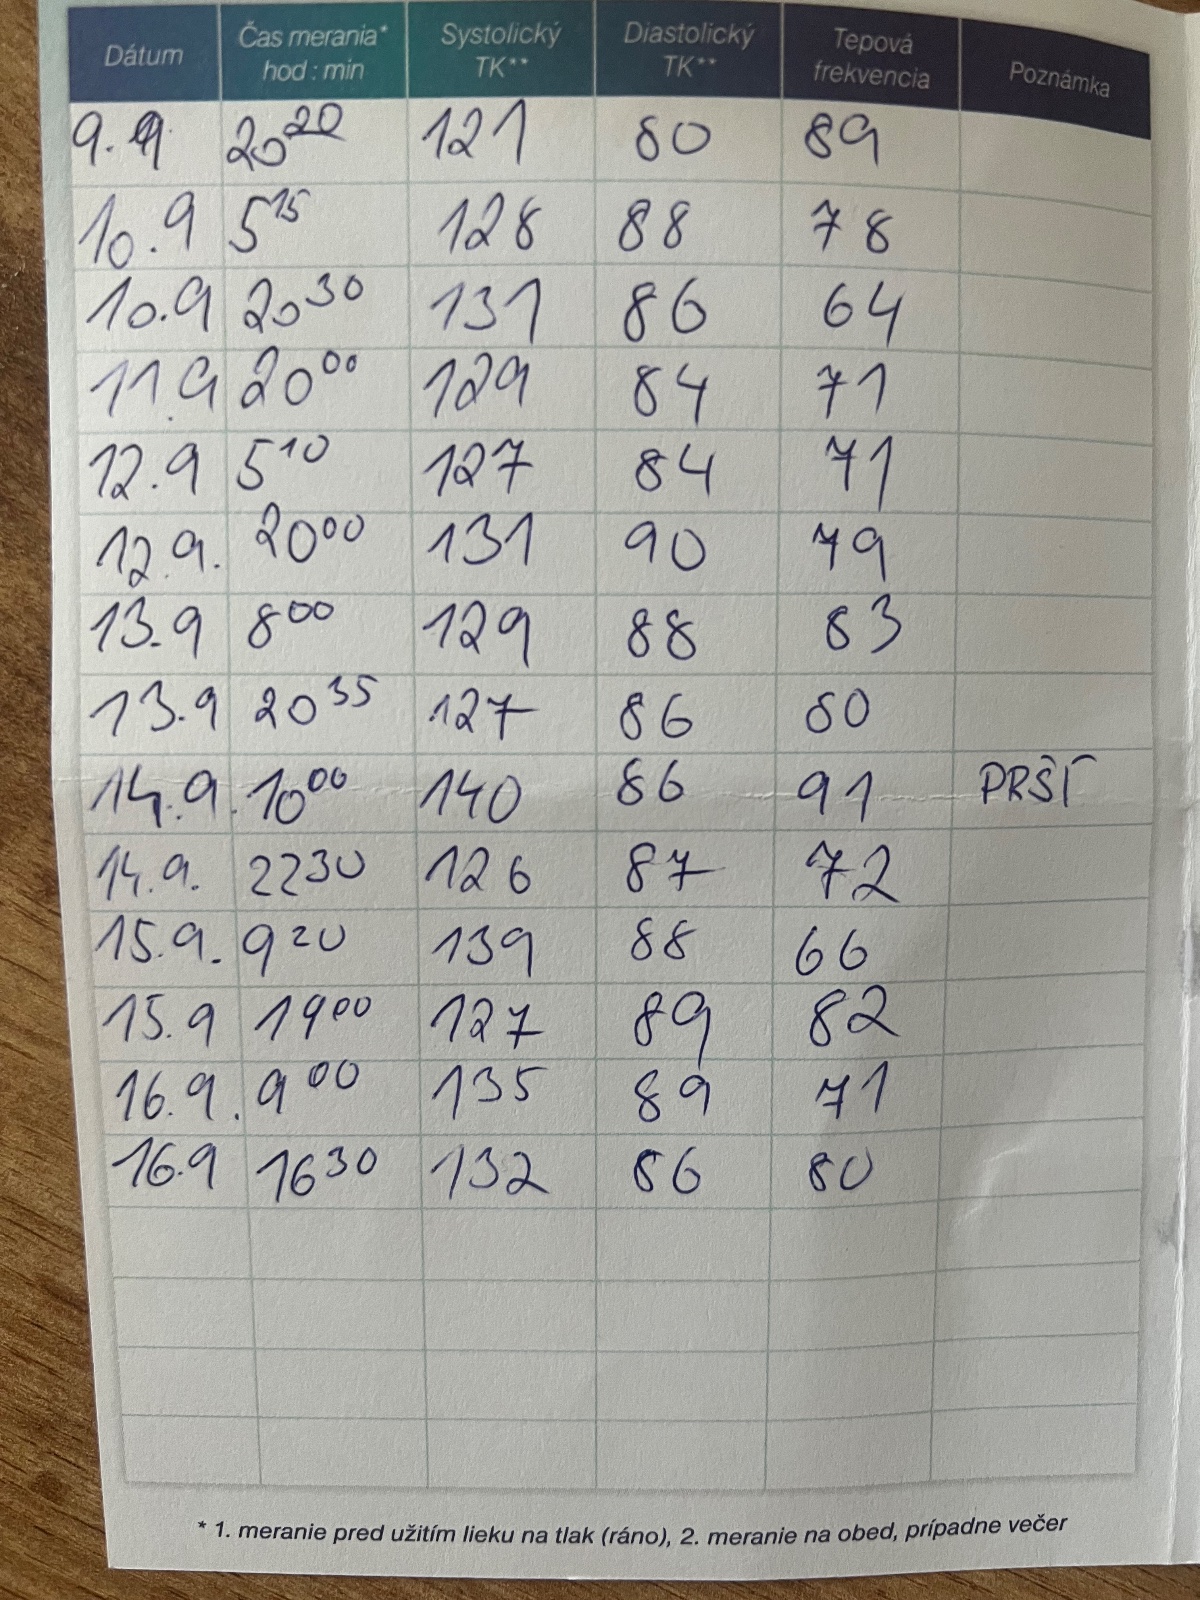 Dátum Čas merania* hod : min Systolický TK** Diastolický TK** Tepová frekvencia Poznámka
9.9 20 20 121 80 89
10.9 5 15 128 88 78
10.9 20 30 131 86 64
11.9 20 00 129 84 71
12.9 5 10 127 84 71
12.9. 20 00 131 90 79
13.9 8 00 129 88 83
13.9 20 35 127 86 80
14.9. 10 00 140 86 91 PRŠÍ
14.9. 22 30 126 87 72
15.9. 9 20 139 88 66
15.9 19 00 127 89 82
16.9. 9 00 135 89 71
16.9 16 30 132 86 80
* 1. meranie pred užitím lieku na tlak (ráno), 2. meranie na obed, prípadne večer